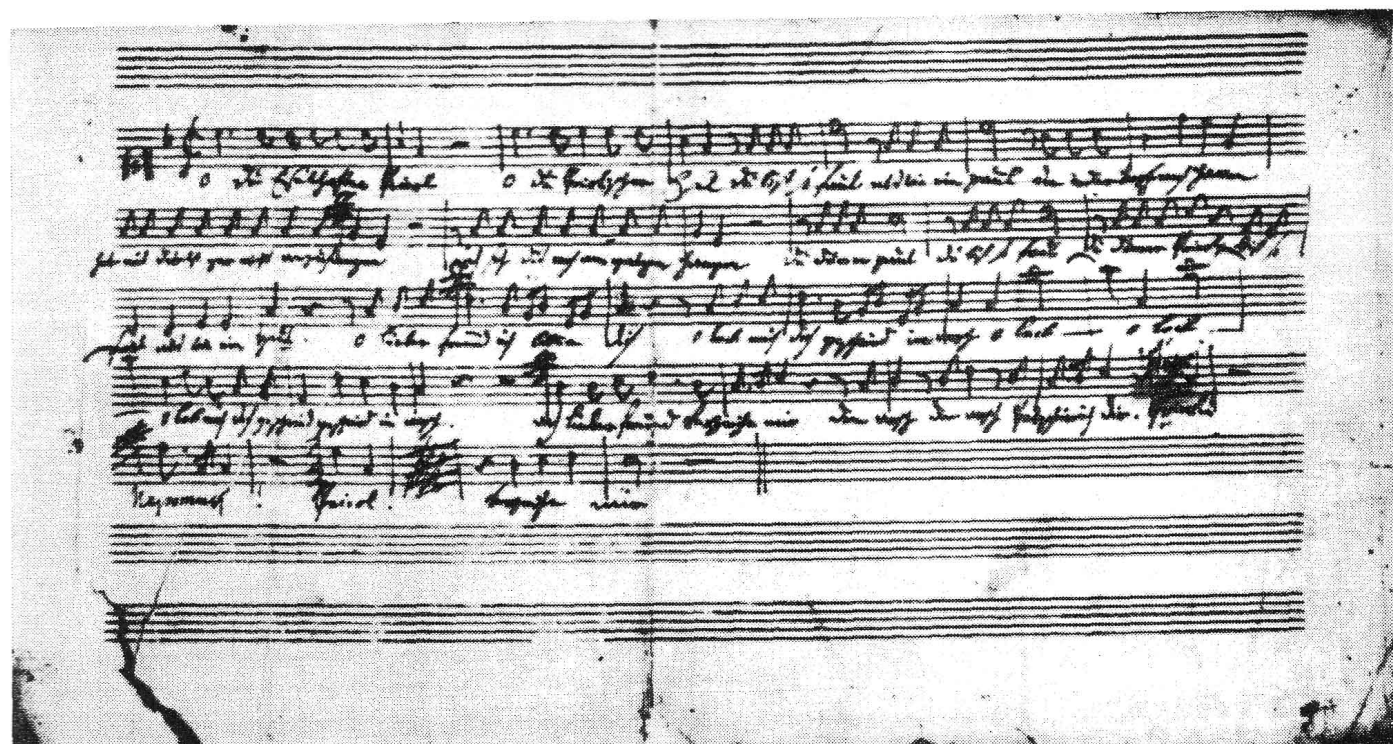 O du Eselhafter Peierl O du Peierlischer Esel du bist so faul als wie ein gaul der weder kopf noch haxen
hat mit dir ist gar nichts anzufangen ich seh dich noch am galgen hangen du dummer gaul du bist so faul du dummer Peierl bist so
faul als wie ein gaul. O lieber freund ich bitte dich O leck mich doch geschwind im arsch O leck — O leck —
O leck mich doch geschwind geschwind im arsch. Ach lieber freund verzeihe mir den arsch den arsch petschier ich dir. Peierl
Nepomuck! Peierl! verzeihe mir